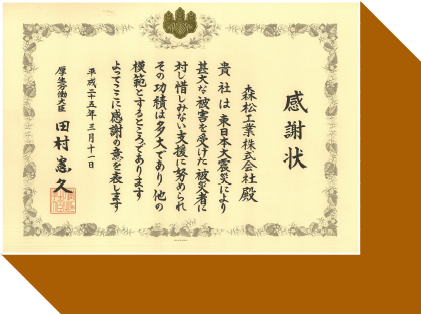 感謝状
森松工業株式会社 殿
貴社は東日本大震災により
甚大な被害を受けた被災者に
対し惜しみない支援に努められ
その功績は多大であり他の
模範とするところであります
よってここに感謝の意を表します
平成二十五年三月十一日
厚生労働大臣 田村憲久